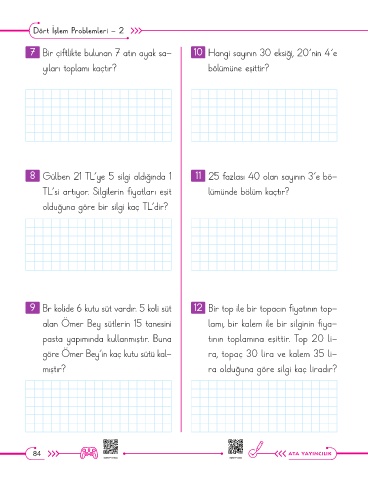 Dört İşlem Problemleri - 2
7 Bir çiftlikte bulunan 7 atın ayak sa-
yıları toplamı kaçtır?
8 Gülben 21 TL'ye 5 silgi aldığında 1
TL'si artıyor. Silgilerin fiyatları eşit
olduğuna göre bir silgi kaç TL'dir?
9 Bir kolide 6 kutu süt vardır. 5 koli süt
alan Ömer Bey sütlerin 15 tanesini
pasta yapımında kullanmıştır. Buna
göre Ömer Bey'in kaç kutu sütü kal-
mıştır?
10 Hangi sayının 30 eksiği, 20'nin 4'e
bölümüne eşittir?
11 25 fazlası 40 olan sayının 3'e bö-
lümünde bölüm kaçtır?
12 Bir top ile bir topacın fiyatının top-
lamı, bir kalem ile bir silginin fiya-
tının toplamına eşittir. Top 20 li-
ra, topaç 30 lira ve kalem 35 li-
ra olduğuna göre silgi kaç liradır?
84
ATA YAYINCILIK